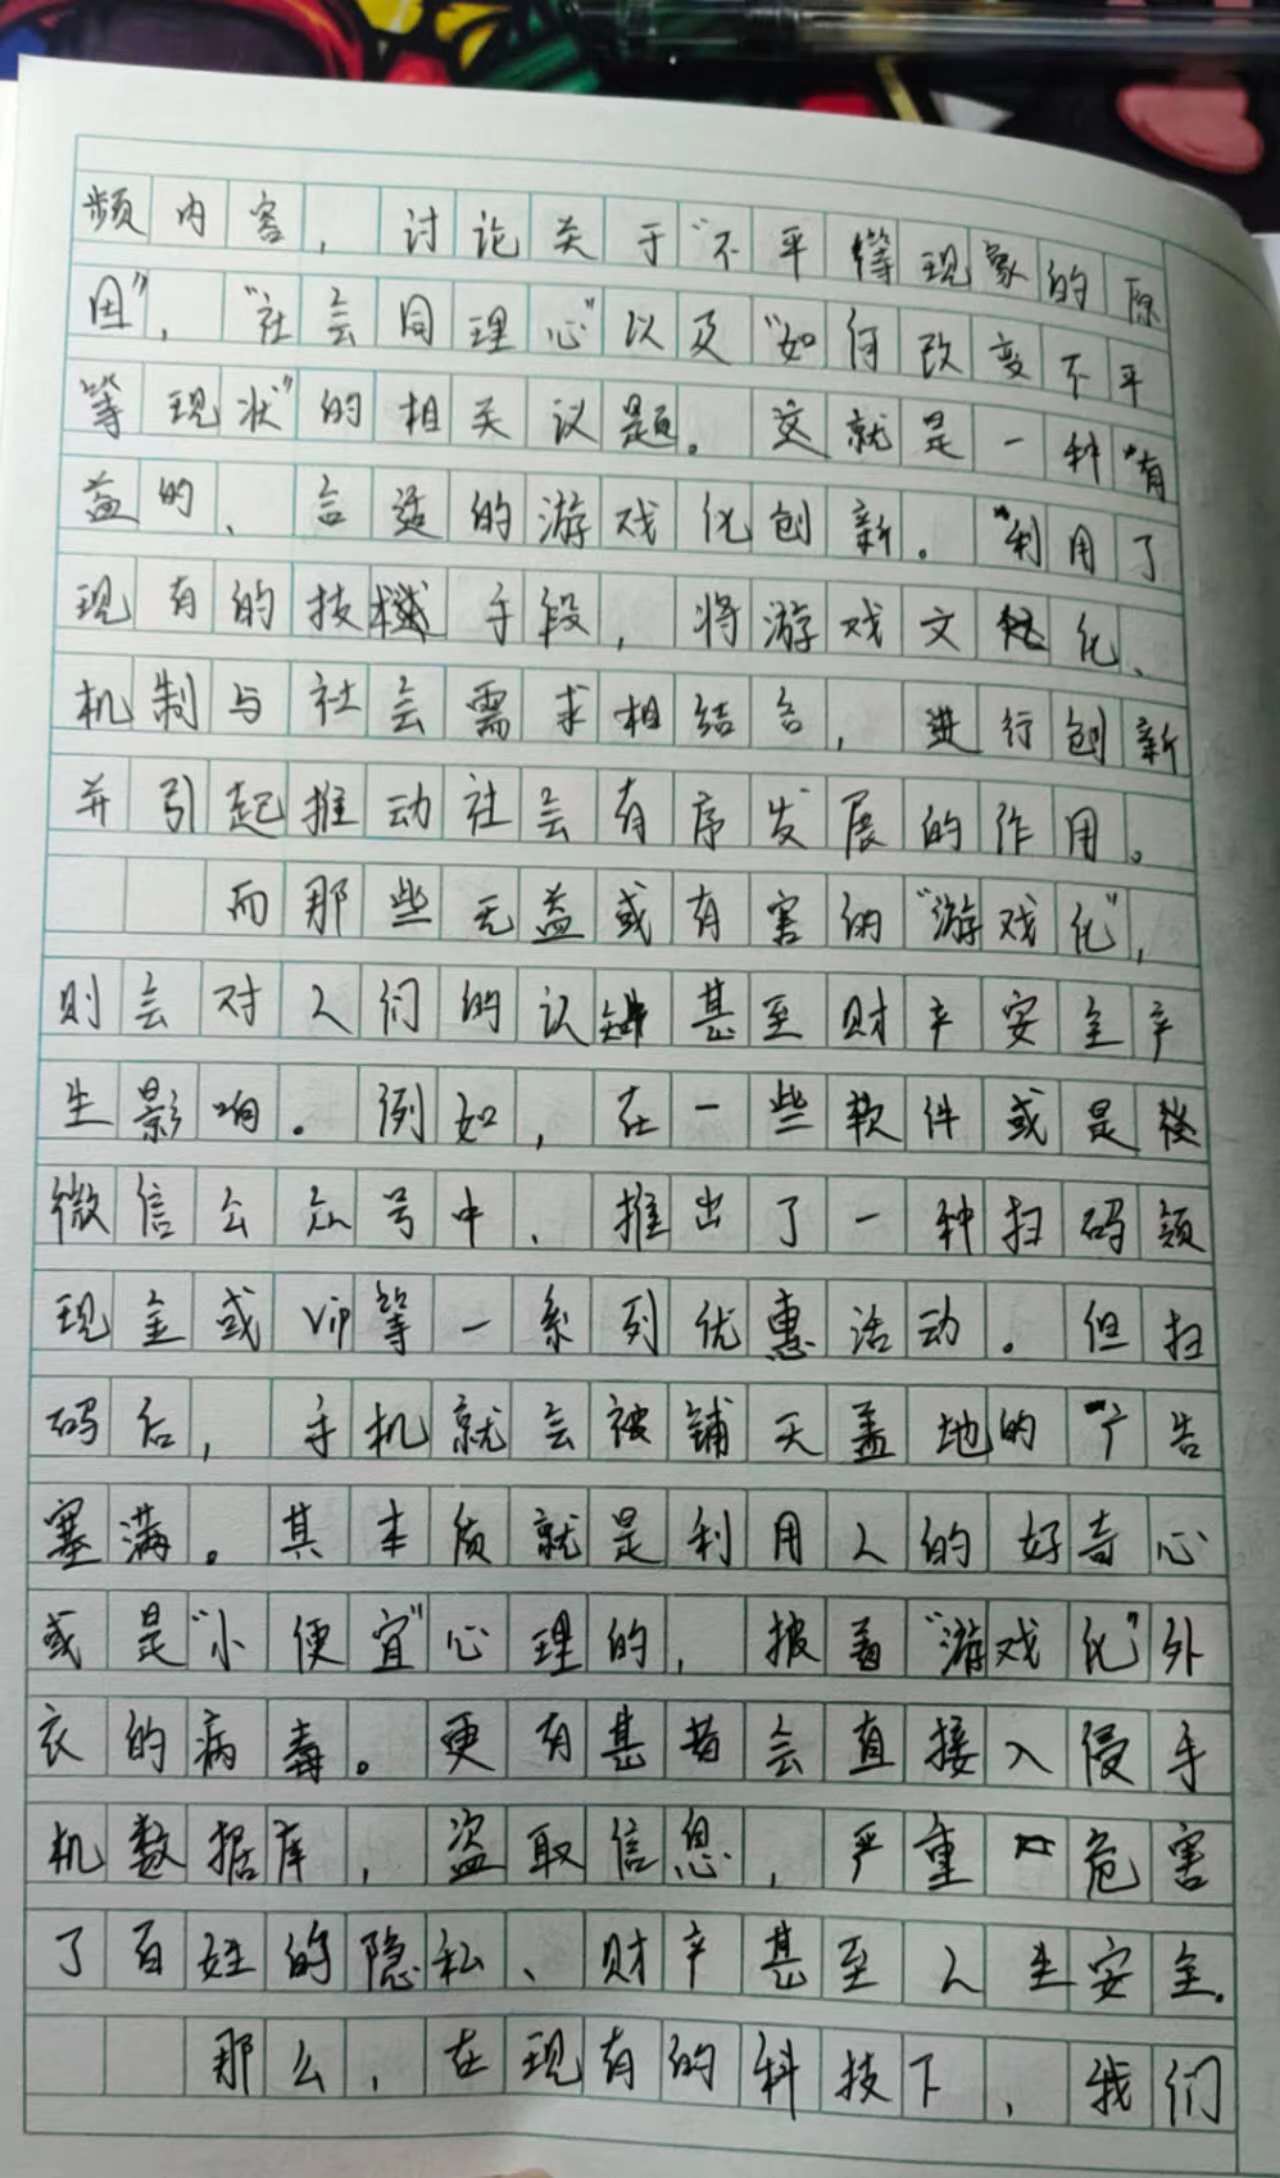 频内容，讨论关于“不平等现象的原
因”，“社会同理心”以及“如何改变不平
等现状”的相关议题。这就是一种“有
益的、合适的游戏化创新。”利用了
现有的技 手段，将游戏文化、
机制与社会需求相结合，进行创新
并引起推动社会有序发展的作用。
而那些无益或有害的“游戏化”，
则会对人们的认知甚至财产安全产
生影响。例如，在一些软件或是
微信公众号中，推出了一种扫码领
现金或vip等一系列优惠活动。但扫
码后，手机就会被铺天盖地的广告
塞满。其本质就是利用人的好奇心
或是“小便宜”心理的，披着“游戏化”外
衣的病毒。更有甚者会直接入侵手
机数据库，盗取信息，严重危害
了百姓的隐私、财产甚至人生安全。
那么，在现有的科技下，我们